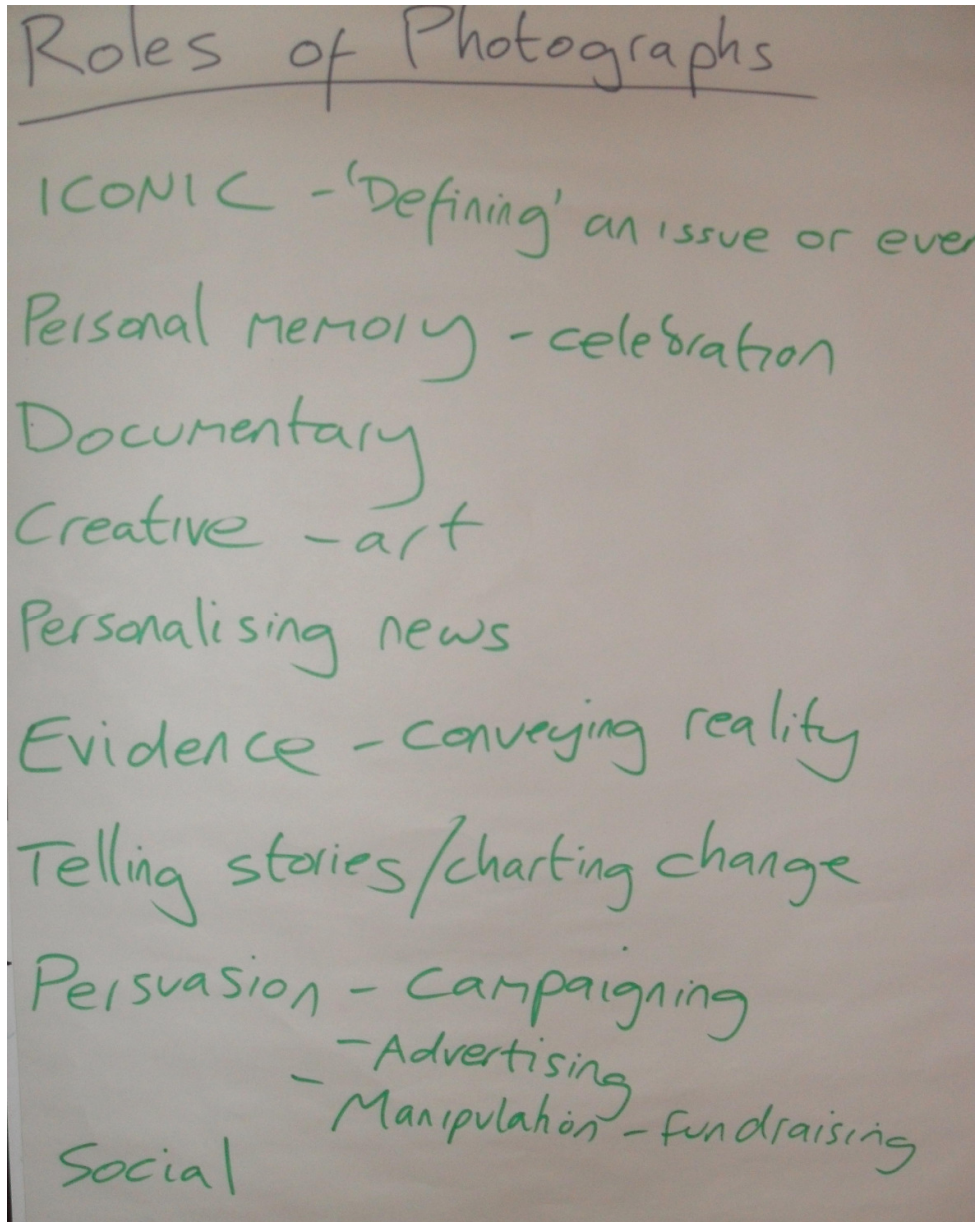 Roles of Photographs
ICONIC - 'Defining' an issue or even
Personal memory - celebration
Documentary
Creative - art
Personalising news
Evidence - conveying reality
Telling stories/charting change
Persuasion - Campaigning
- Advertising
- Manipulation - fundraising
Social